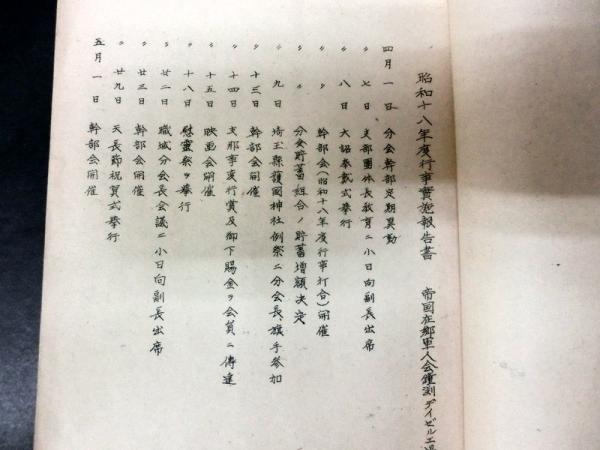 昭和十八年度行事実施報告書
帝国在郷軍人会鐘渕デイゼル工場
四月一日 分会幹部定期異動
〃 七日 支部団体長教育ニ小日向副長出席
〃 八日 大詔奉戴式挙行
〃 〃 幹部会(昭和十八年度行事打合)開催
〃 〃 分会貯蓄組合ノ貯蓄増額決定
〃 九日 埼玉縣護国神社例祭ニ分会長、旗手参加
〃 十三日 幹部会開催
〃 十四日 支那事変行賞及御下賜金ヲ会員ニ傳達
〃 十五日 映画会開催
〃 十八日 慰霊祭ヲ挙行
〃 廿二日 職域分会長会議ニ小日向副長出席
〃 廿三日 幹部会開催
〃 廿九日 天長節祝賀式挙行
五月一日 幹部会開催